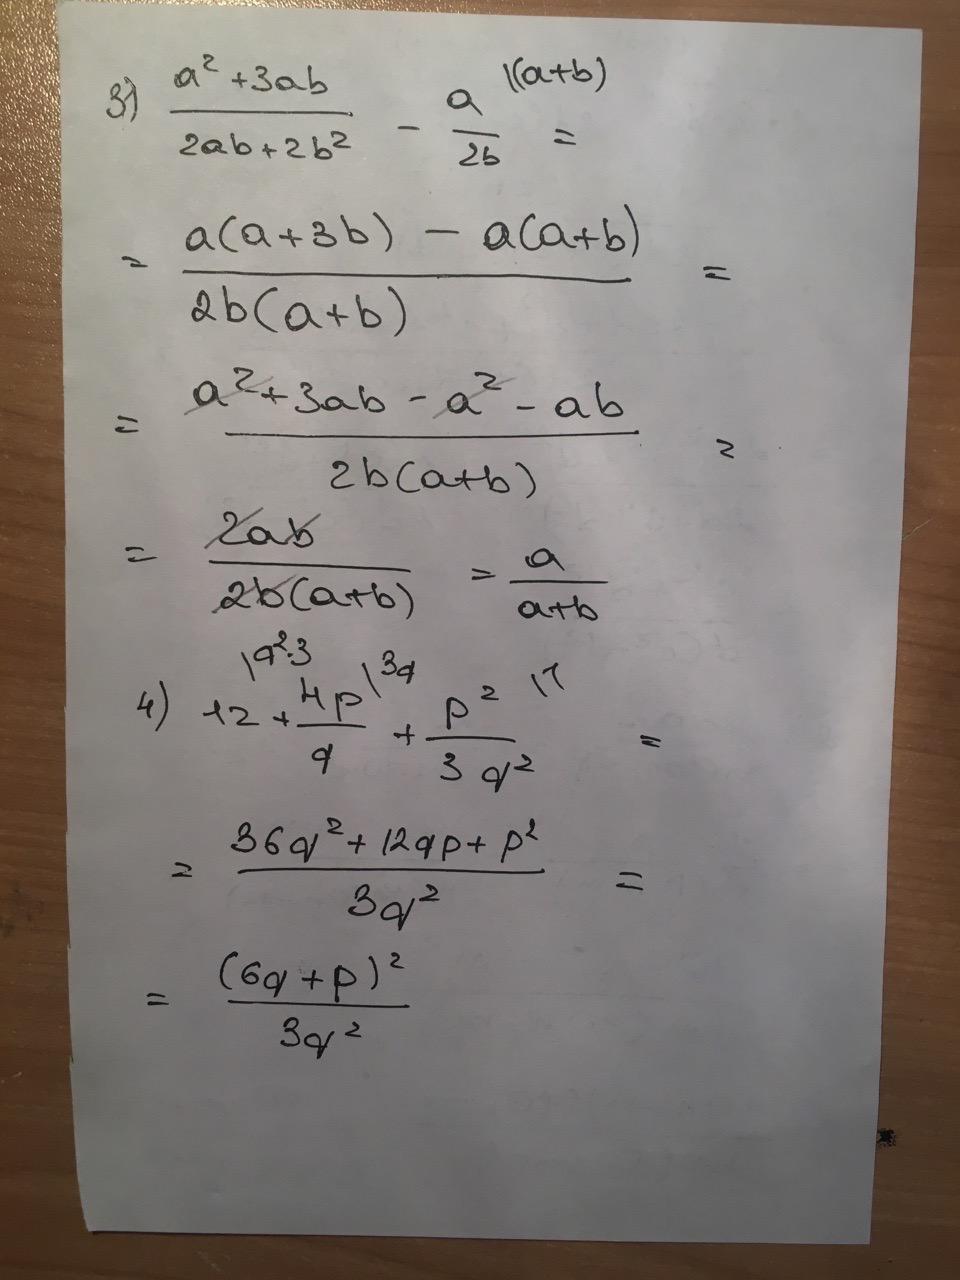 3) (a² + 3ab)/(2ab + 2b²) - a/2b \(a+b) =
= (a(a+3b) - a(a+b))/(2b(a+b)) =
= (a² + 3ab - a² - ab)/(2b(a+b)) =
= 2ab/(2b(a+b)) = a/(a+b)
4) 12 \q²·3 + 4p/q \3q + p²/3q² \1 =
= (36q² + 12qp + p²)/3q² =
= (6q + p)²/3q²